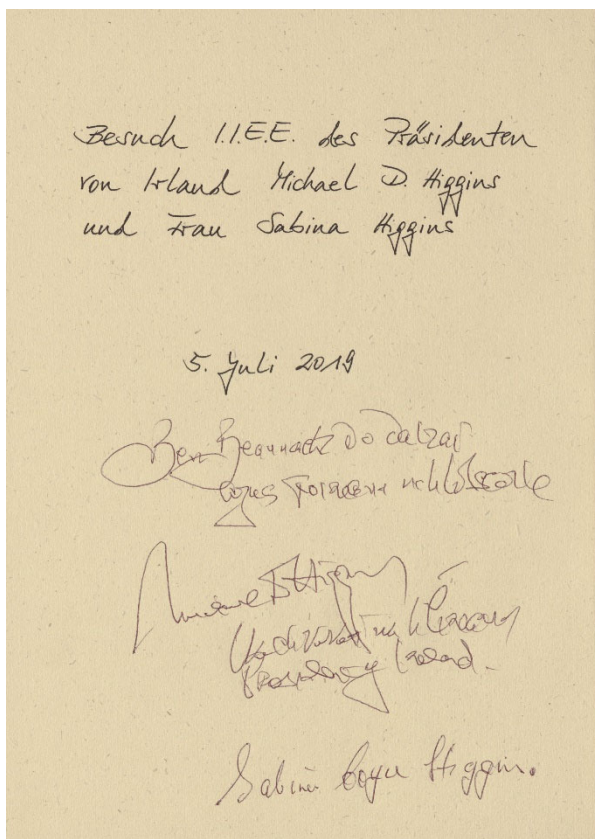 Besuch I.I.E.E. des Präsidenten
von Irland Michael D. Higgins
und Frau Sabina Higgins
5. Juli 2019
Beannacht do daltaí
agus foireann na hOllscoile
Michael D Higgins
Uachtarán na hÉireann
President of Ireland.
Sabina Coyne Higgins.